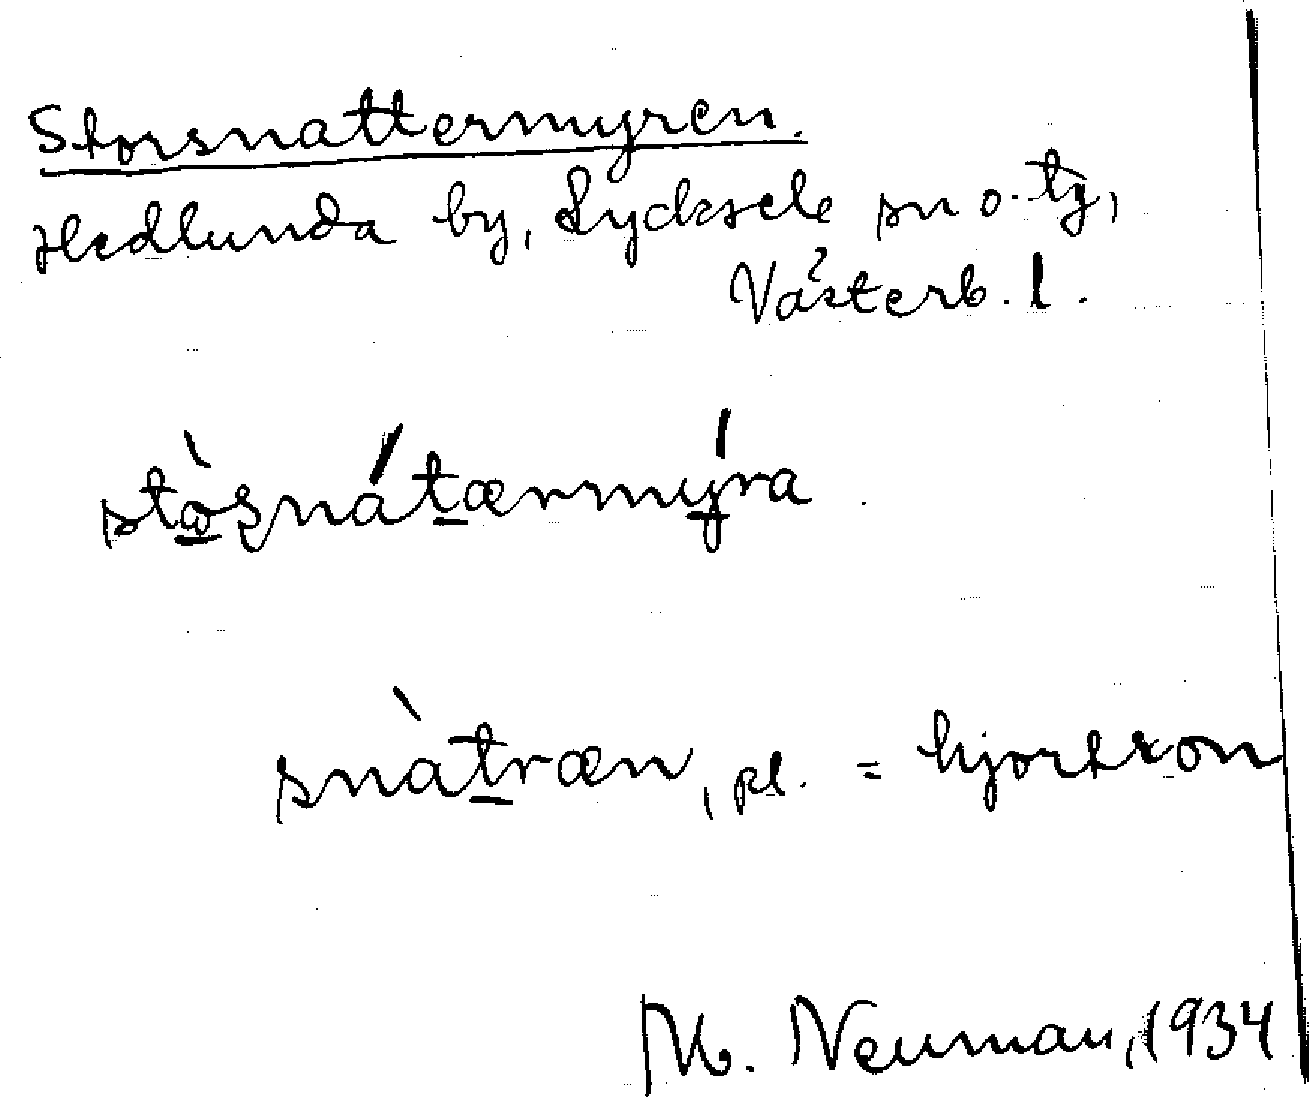 Storsnattermyren.
Hedlunda by, Lycksele sn o. tg,
Västerb. l.
stò̱snátærmýra
snàtræn, pl. = hjortron
M. Neuman, 1934